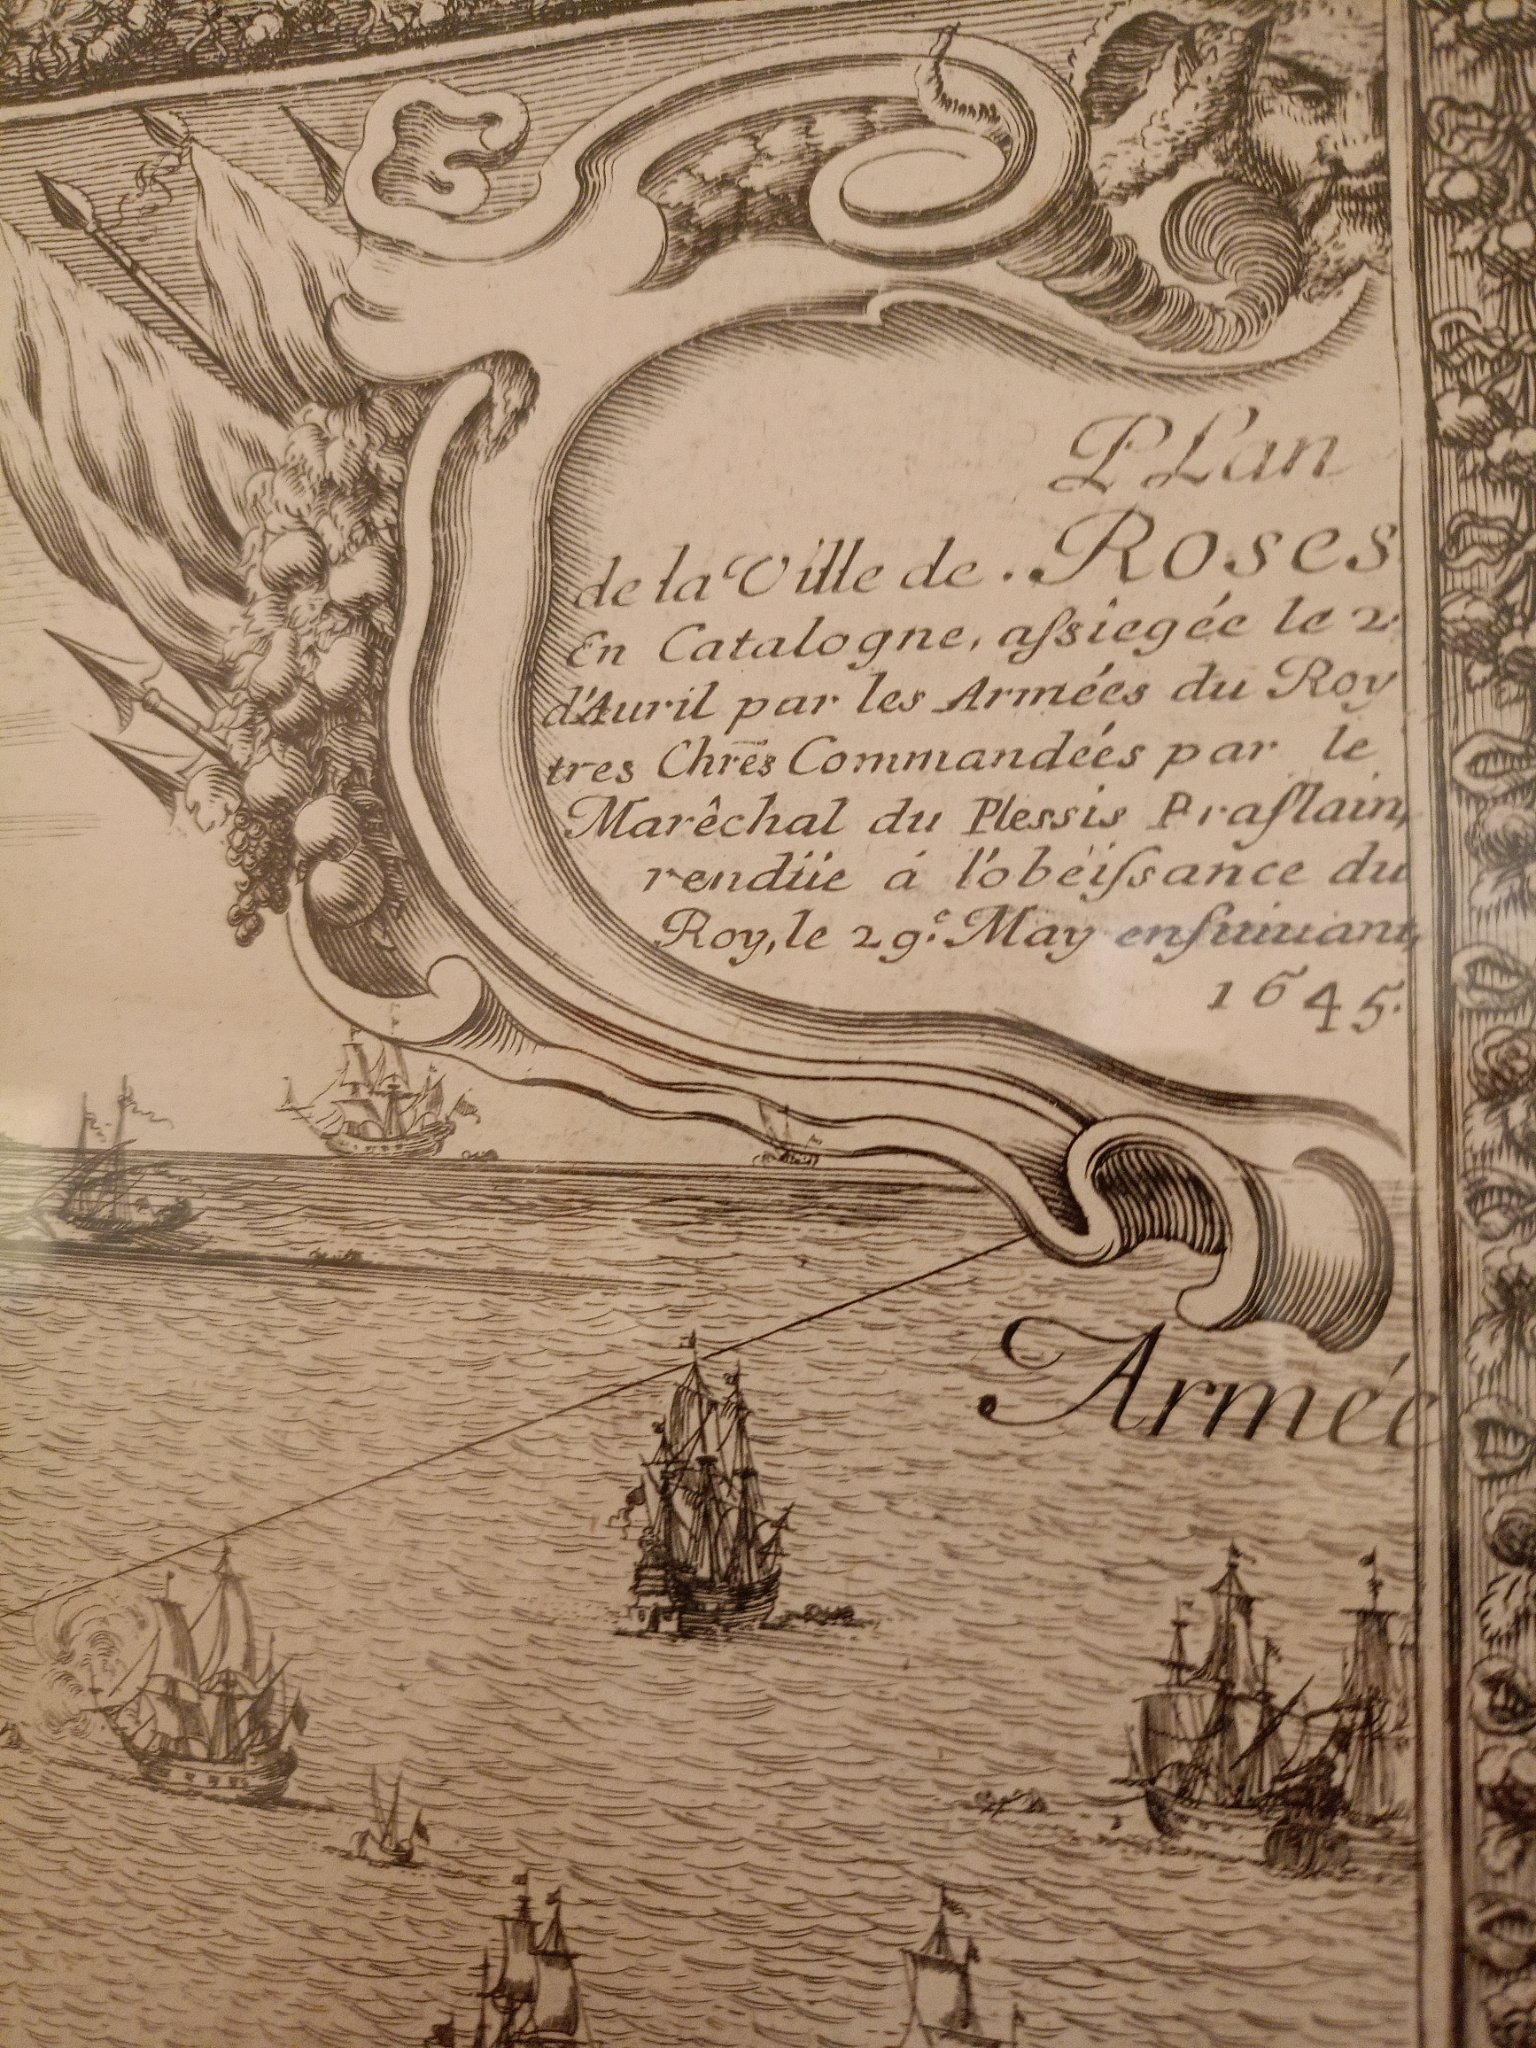 PLan
de la Ville de . Roses
En Catalogne, aſsiegée le 2
d'Auril par les Armées du Roy
tres Chrēs Commandées par le
Marêchal du Plessis Praſlain,
rendüe á l'obëiſsance du
Roy, le 29.e May enſuiuant,
1645.
Armée